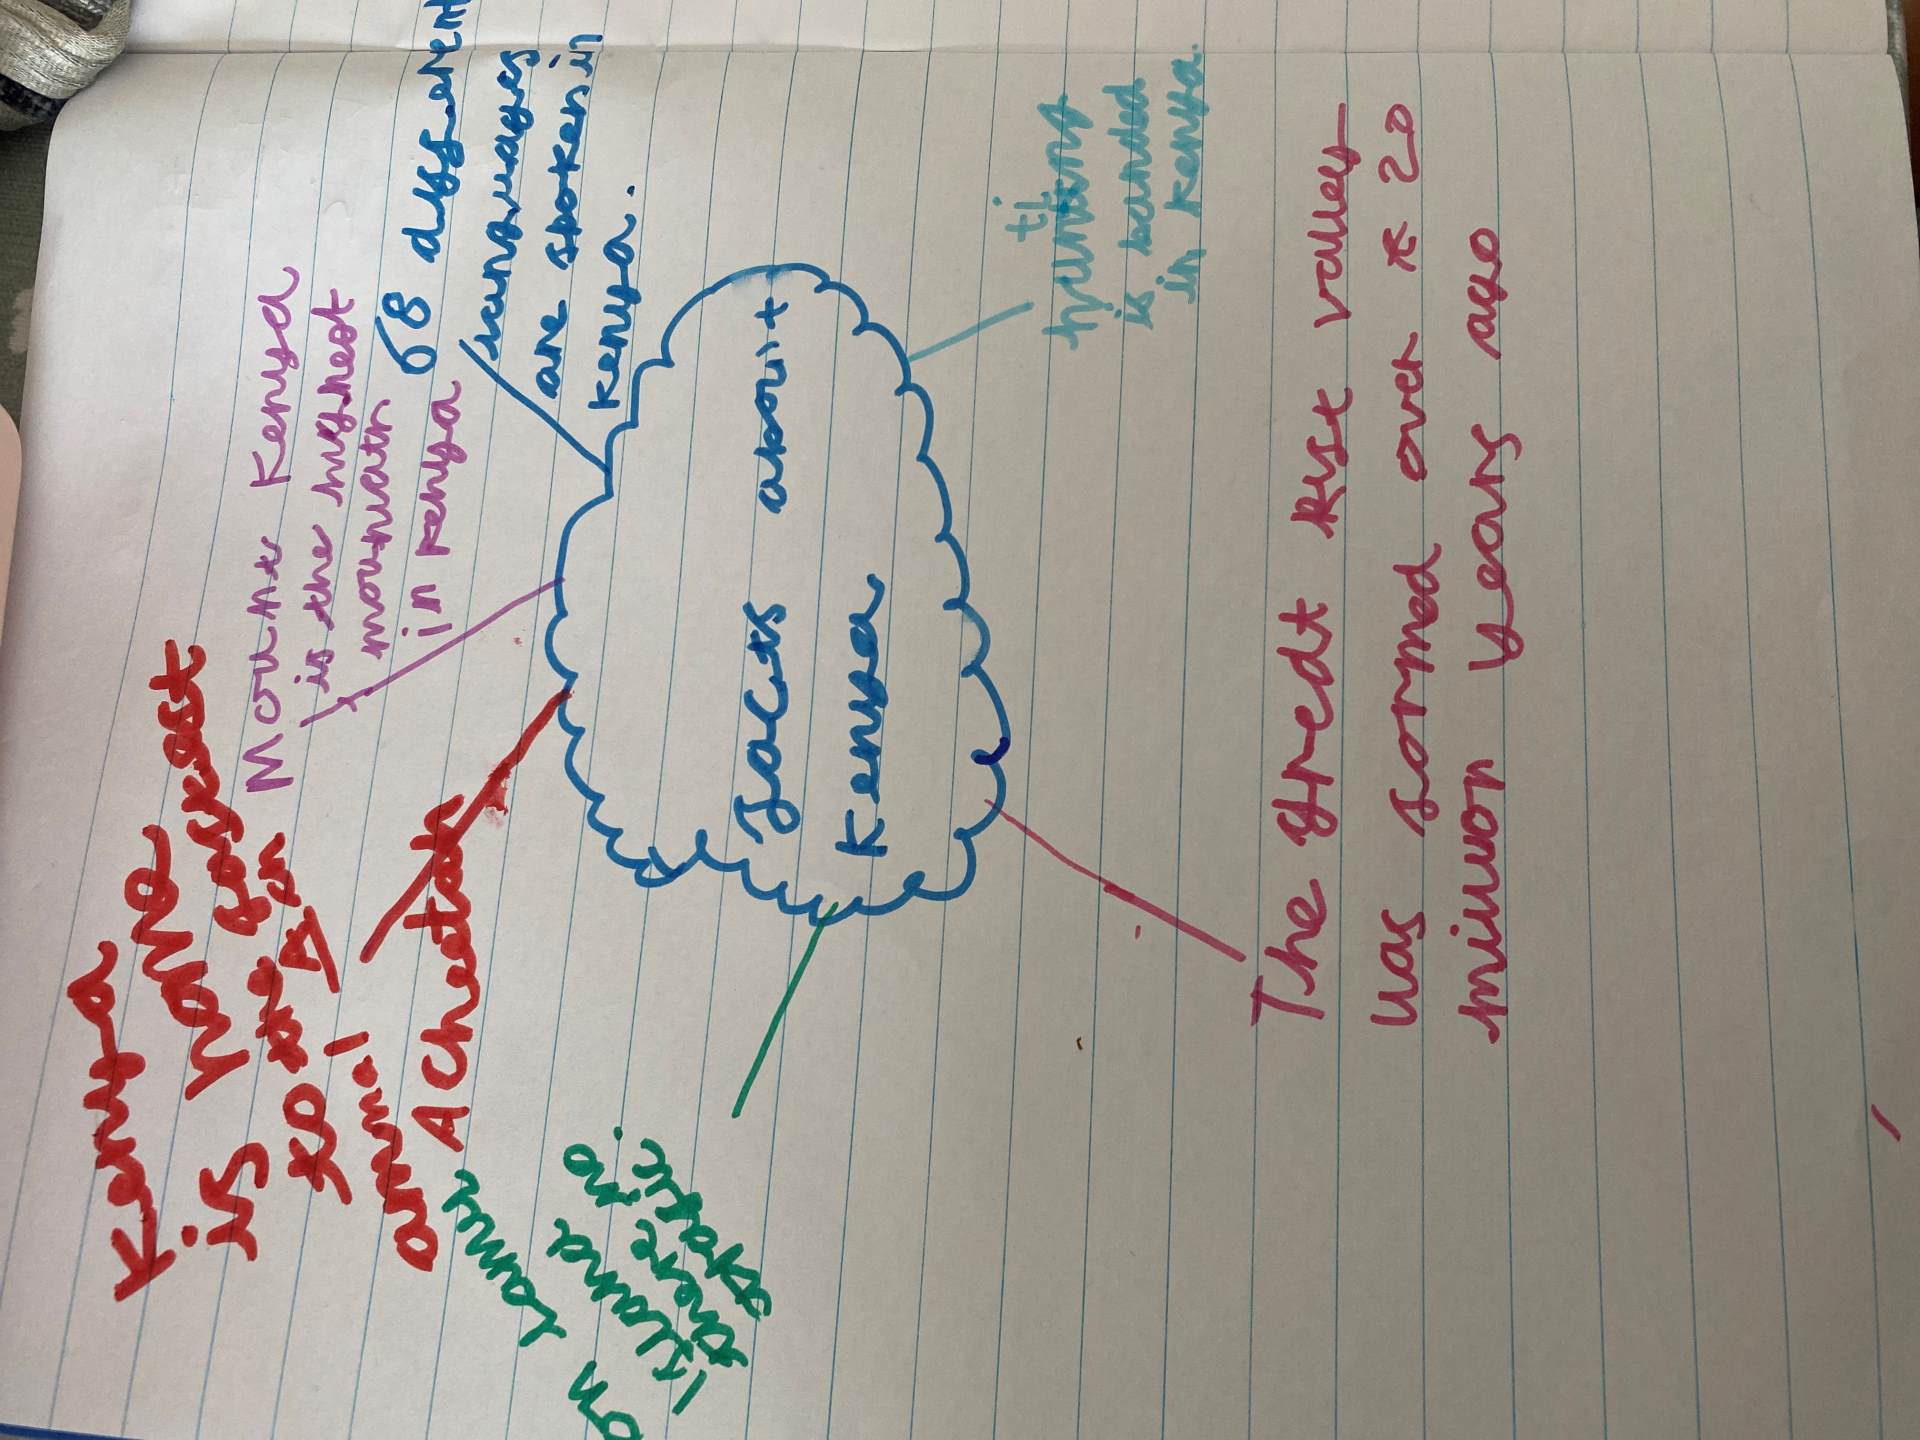 Facts about
Kenya
Kenya
is home
to the fastest
animal
A Cheetah
Mount Kenya
is the highest
mountain
in kenya
68 different
languages
are spoken in
kenya.
hunting
is banned
in kenya.
The great Rift valley
was formd over 20
million years ago
on Lamu
Island
there is no
trafic.